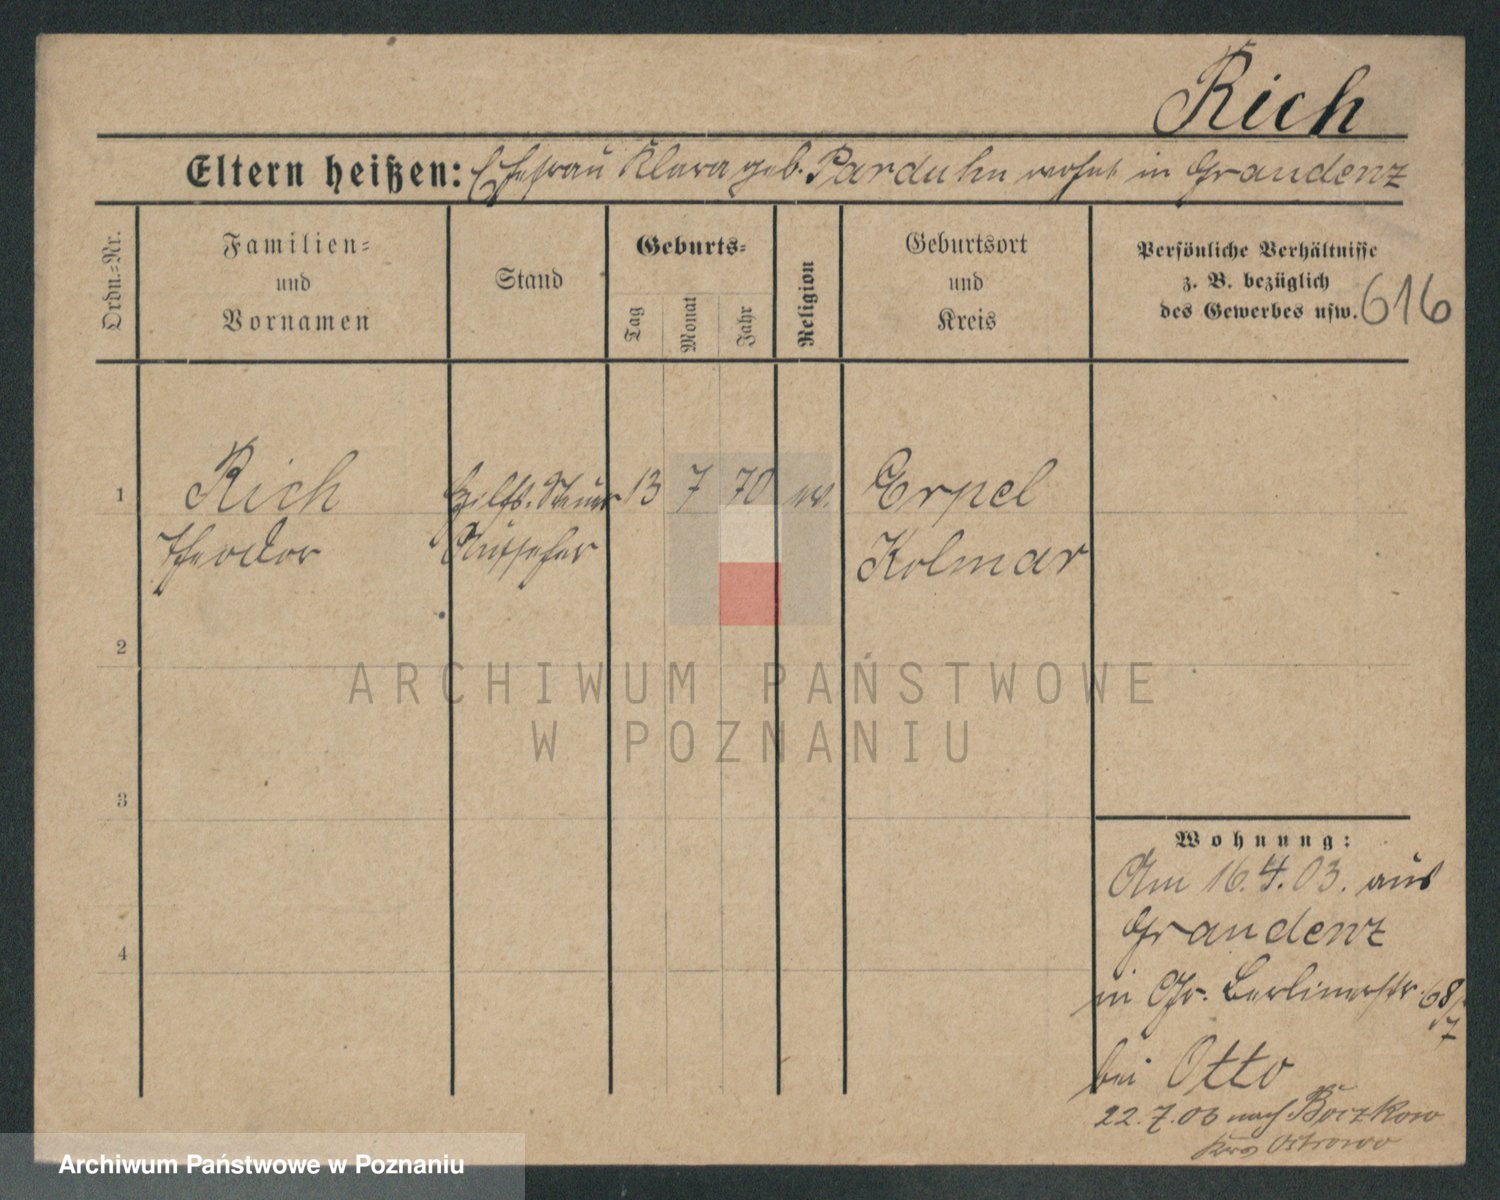 Rich
Eltern heißen: Ehefrau Klara geb. Parduhn wohnt in Graudenz
Ordn.=Nr.
Familien=
und
Vornamen
Stand
Geburts=
Tag
Monat
Jahr
Religion
Geburtsort
und
Kreis
Persönliche Verhältnisse
z. B. bezüglich
des Gewerbes usw. 616
1
Rich
Theodor
Hilfs. Steuer
Aufseher
13 7 70
ev.
Erpel
Kolmar
2
ARCHIWUM PAŃSTWOWE
W POZNANIU
3
4
Wohnung:
Am 16.4.03. aus
Graudenz
in Gr. Berlinerstr. 68/7
bei Otto
22.7.03 nach Boczkow
Ostrowo
Archiwum Państwowe w Poznaniu